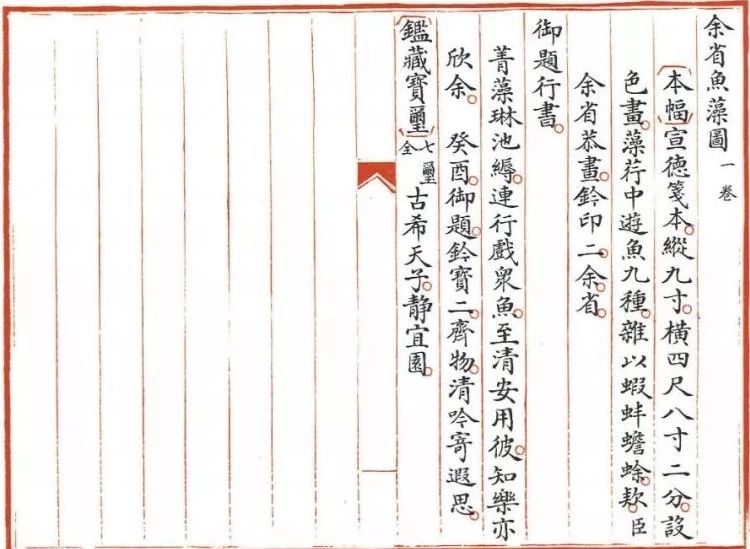 余省魚藻圖 一卷
〔本幅〕宣德箋本。縱九寸。橫四尺八寸二分。設
色畫。藻荇中遊魚九種。雜以蝦蚌蟾蜍。款。臣
余省恭畫。鈐印二。余。省。
御題行書。
菁藻琳池縟。連行戲衆魚。至清安用彼。知樂亦
欣余。癸酉。御題。鈐寶二。齊物。清吟寄遐思。
〔鑑藏寶璽〕七璽全 古希天子。静宜園。